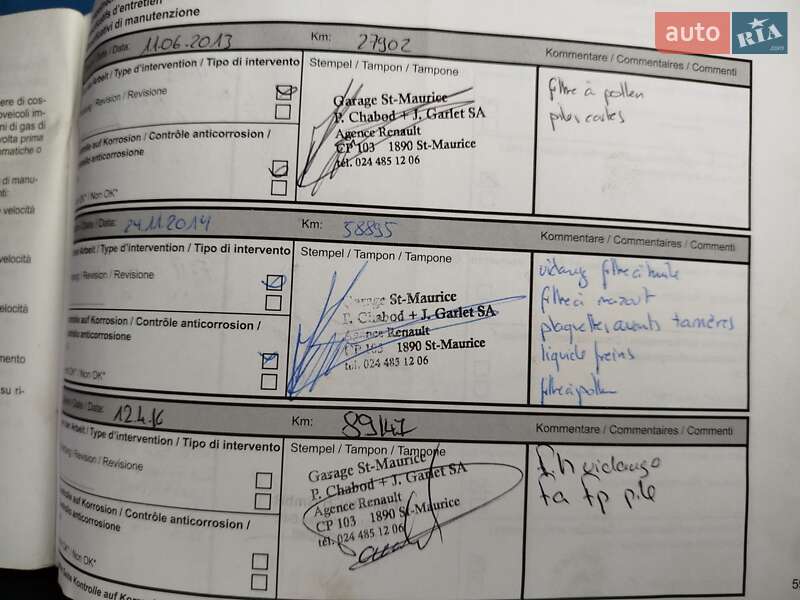 d'entretien
di manutenzione
auto RIA.com
Data: 11.06.2013 Km: 27902
Arbeit / Type d'intervention / Tipo di intervento
Stempel / Tampon / Tampone
Kommentare / Commentaires / Commenti
Revision / Revisione
Garage St-Maurice
P. Chabod + J. Garlet SA
Agence Renault
CP 103 1890 St-Maurice
tél. 024 485 12 06
filtre à pollen
auf Korrosion / Contrôle anticorrosion /
anticorrosione
OK* / Non OK*
Date / Data: 24.11.2014 Km: 58895
Arbeit / Type d'intervention / Tipo di intervento
Stempel / Tampon / Tampone
Kommentare / Commentaires / Commenti
Revision / Revisione
Garage St-Maurice
P. Chabod + J. Garlet SA
Agence Renault
CP 103 1890 St-Maurice
tél. 024 485 12 06
vidange filtre à huile
filtre à mazout
plaquettes avants
liquide freins
filtre à pollen
auf Korrosion / Contrôle anticorrosion /
anticorrosione
OK* / Non OK*
Date / Data: 12.4.16 Km: 89147
Arbeit / Type d'intervention / Tipo di intervento
Stempel / Tampon / Tampone
Kommentare / Commentaires / Commenti
Revision / Revisione
Garage St-Maurice
P. Chabod + J. Garlet SA
Agence Renault
CP 103 1890 St-Maurice
tél. 024 485 12 06
fh vidange
fa fp pile
auf Korrosion / Contrôle anticorrosion /
anticorrosione
OK* / Non OK*
Kontrolle auf Korrosion /
ere di cos-
oveicoli im-
ni di gas di
volta prima
omatiche o
di manu-
nti:
velocità
velocità
velocità
mento
su ri-